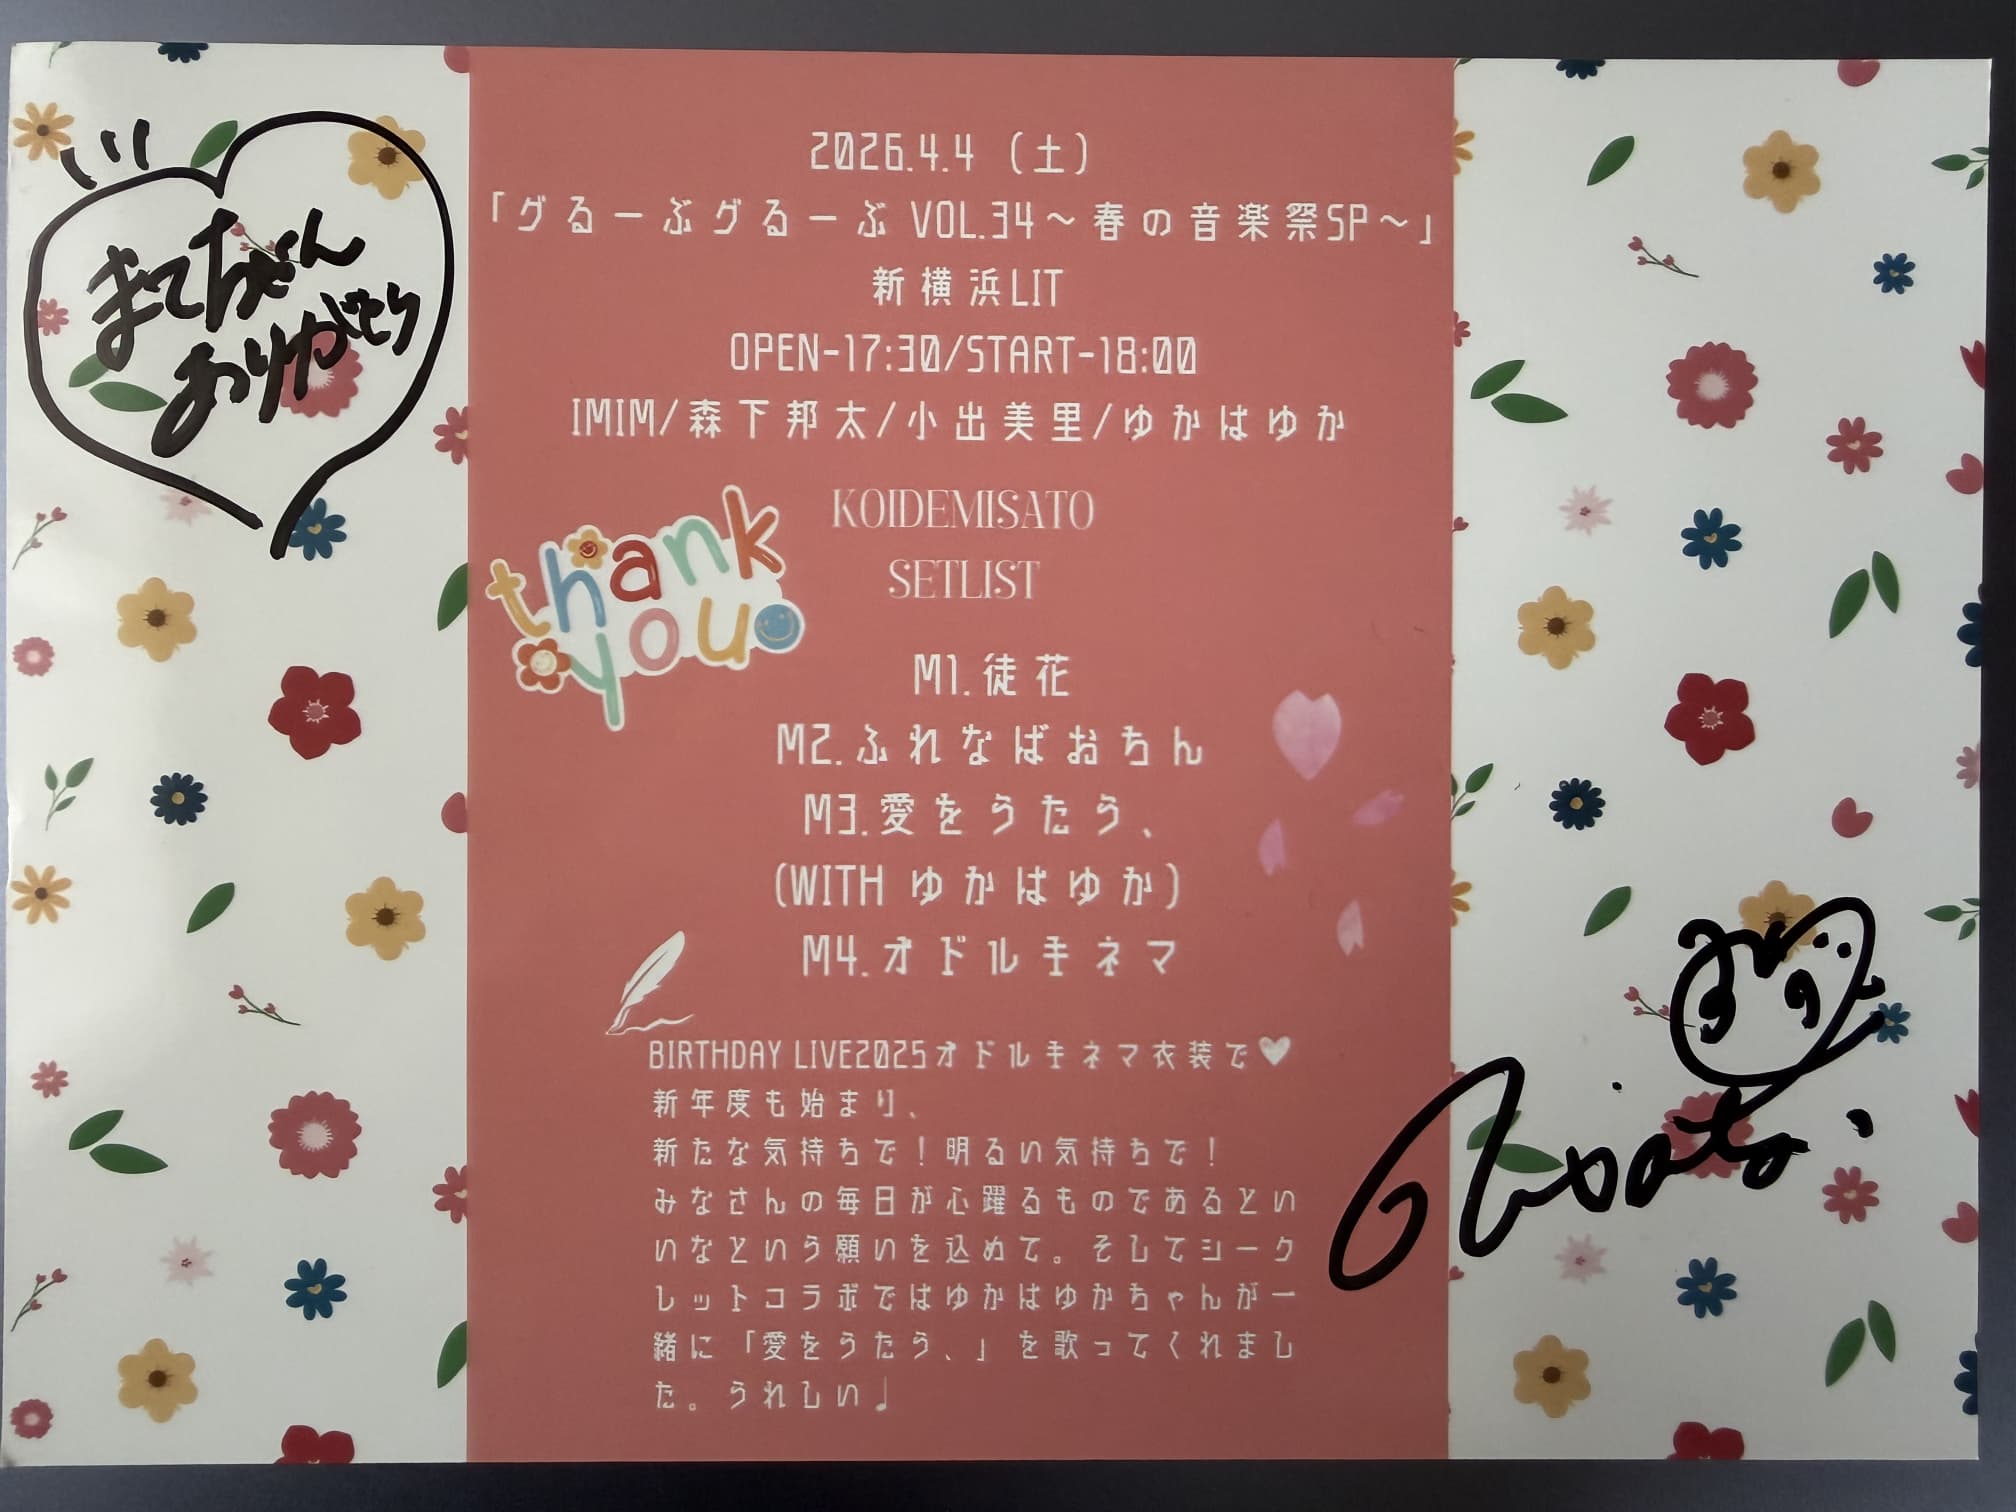 2026.4.4 (土)
「グるーぶグるーぶ VOL.34～春の音楽祭SP～」
新横浜LIT
OPEN-17:30/START-18:00
IMIM/森下邦太/小出美里/ゆかはゆか
まてちゃん
ありがとう
KOIDEMISATO
SETLIST
thank
you
M1.徒花
M2.ふれなばおちん
M3.愛をうたう、
(WITH ゆかはゆか)
M4.オドルキネマ
BIRTHDAY LIVE2025オドルキネマ衣装で♥
新年度も始まり、
新たな気持ちで！明るい気持ちで！
みなさんの毎日が心躍るものであるとい
いなという願いを込めて。そしてシーク
レットコラボではゆかはゆかちゃんが一
緒に「愛をうたう、」を歌ってくれまし
た。うれしい♩
Misato